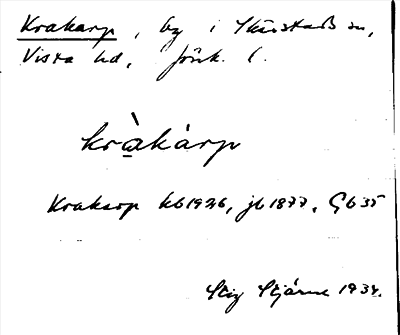 Krakarp, by i Skärstads sn,
Vista hd, Jönk. l.
kràkàrp
Kraksrp kb1926, jb1877, Gb35
Stig Stjärne 1934.